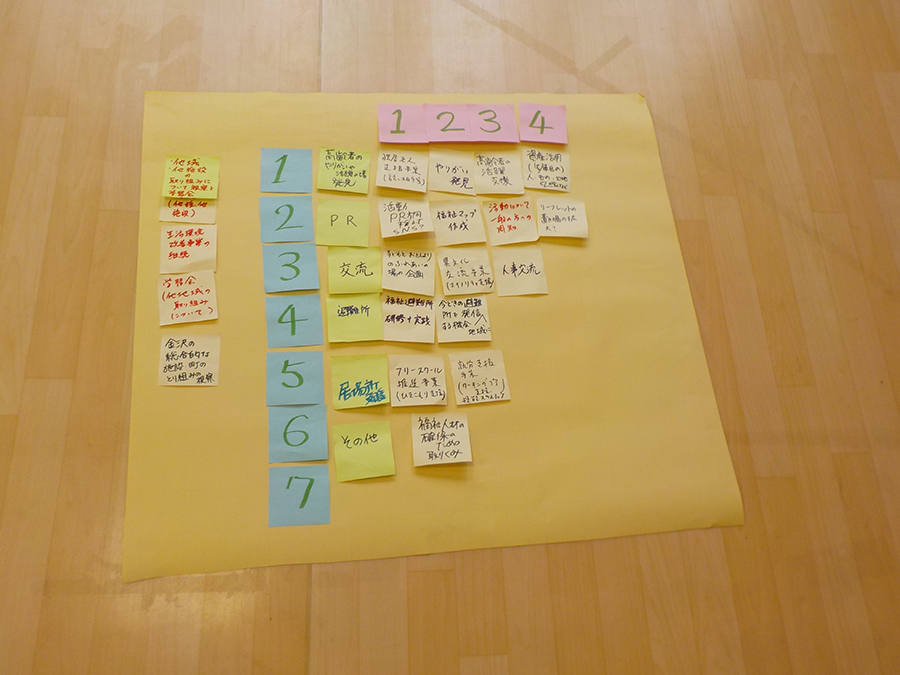 1 2 3 4
他域
他施設
の
取り組みに
ついて 視察と
学習会
(他種、他
施設)
生活環境
改善事業の
継続
学習会
(他地域の
取り組み
について)
金沢の
総合的な
施設 町の
とり組みの視察
1
高齢者の
やりがいや
活躍の場
発見
やりがい
発見
高齢者の
活躍
支援
遊座活用
2
PR
活動
PR方法
検討
SNS?
福祉マップ
作成
活動について
一般の方への
周知
リーフレットの
3
交流
子どもとお年よりの
のふれあいの
場の企画
交流事業
人事交流
4
避難所
福祉避難所
研修+実践
今どきの避難
所を発信
する機会
地域に
5
居場所
支援
フリースクール
推進事業
(ひきこもり支援)
就労支援
事業
6
その他
福祉人材の
確保の
ための
取りくみ
7